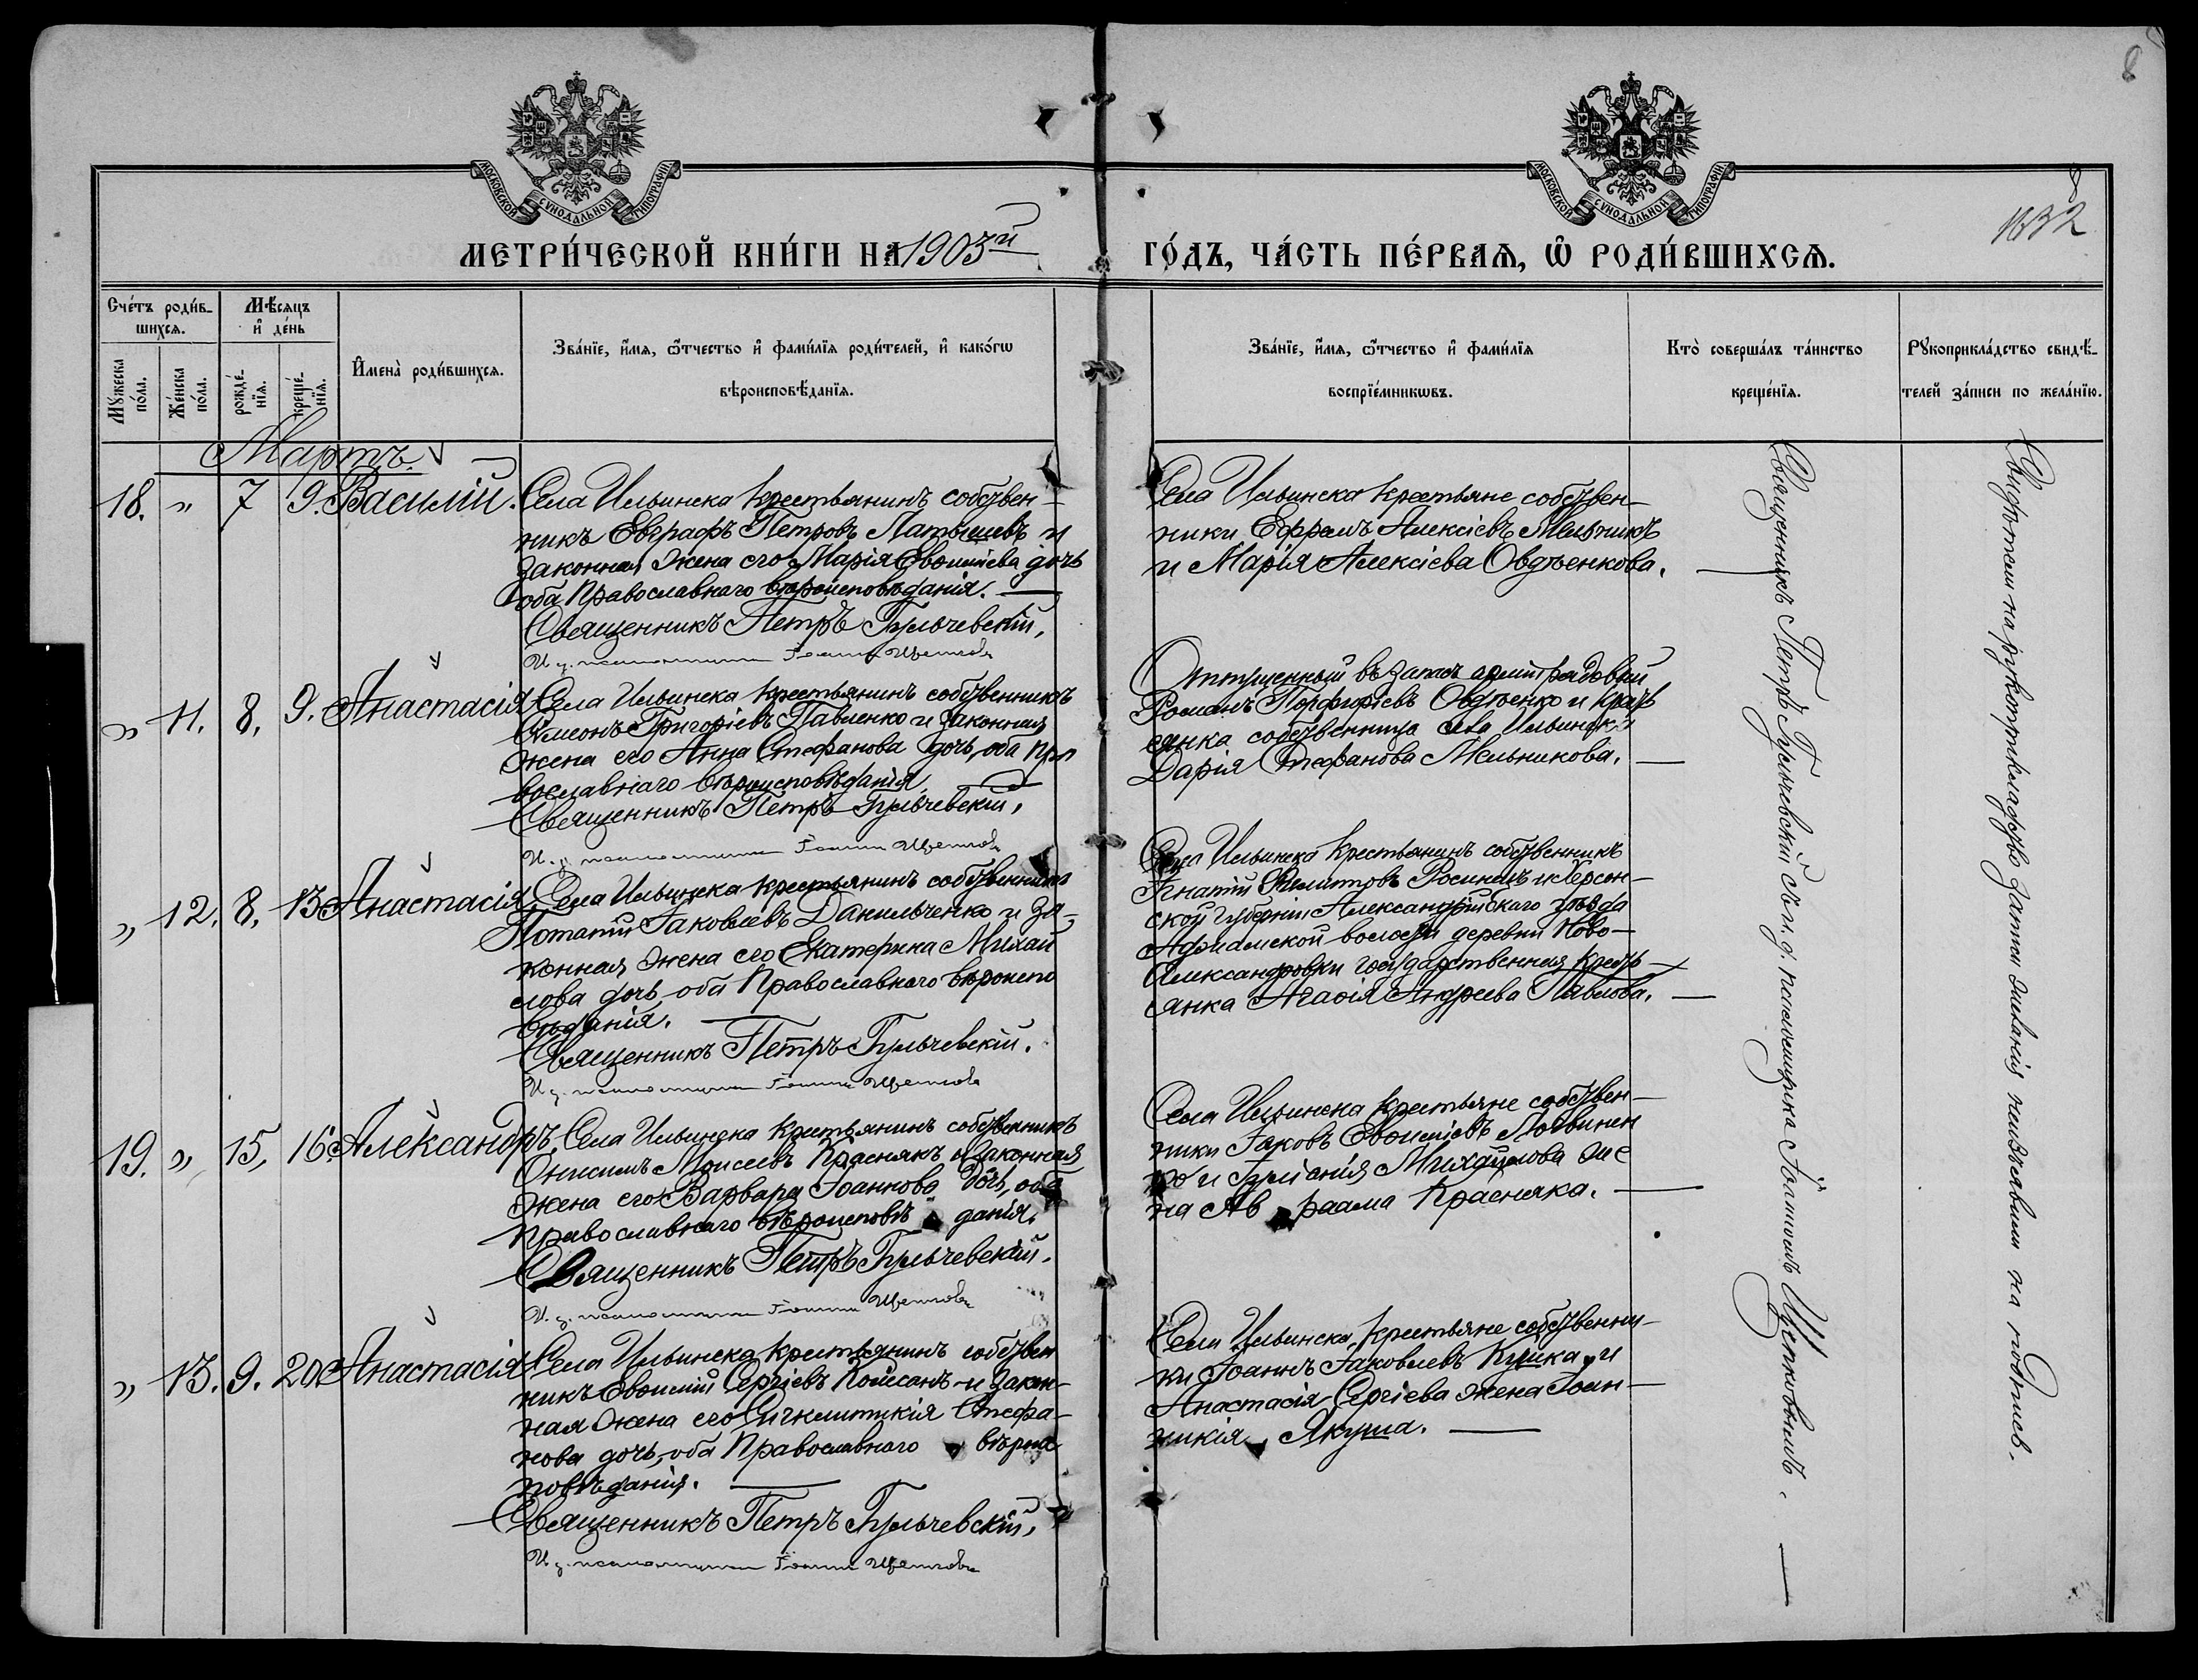 8
МОСКОВСКОЙ СѴНОДАЛЬНОЙ ТИПОГРАФІИ
МОСКОВСКОЙ СѴНОДАЛЬНОЙ ТИПОГРАФІИ
8
1632
МЕТРИ́ЧЕСКОЙ КНИ́ГИ НА 1903й
ГО́ДЪ, ЧА́СТЬ ПЕ́РВАЯ, Ѽ РОДИ́ВШИХСЯ.
Сче́тъ роди́в-
шихся.
Мѣ́сяцъ
и҆ де́нь
Мꙋ́жеска
по́ла.
Же́нска
по́ла.
рожде́-
нїя.
креще́-
нїя.
И҆мена̀ роди́вшихся.
Зва́нїе, и҆́мя, ѻ҆́тчество и҆ фами́лїя роди́телей, и҆ како́гѡ
вѣроисповѣ́данїя.
Зва́нїе, и҆́мя, ѻ҆́тчество и҆ фами́лїя
воспрїе́мникѡвъ.
Кто̀ соверша́лъ та́инство
креще́нїя.
Рꙋкоприкла́дство свидѣ́-
телей за́писи по жела́нїю.
Мартъ.
18. " 7 9. Василій.
Села Ильинска крестьянинъ собствен-
никъ Евграфъ Петровъ Латышевъ и
законная жена его Марія Евѳиміева дочь
оба Православнаго вѣроисповѣданія.
Священникъ Петръ Гульчевскій.
И. д. псаломщика Іоаннъ Щетков
Села Ильинска крестьяне собствен-
ники Ефремъ Алексіевъ Мельникъ
и Марія Алексіева Овдѣенкова.
" 11. 8. 9. Анастасія
Села Ильинска крестьянинъ собственникъ
Симеонъ Григоріевъ Павленко и законная
жена его Анна Стефанова дочь, оба Пра
вославнаго вѣроисповѣданія
Священникъ Петръ Гульчевскій.
И. д. псаломщика Іоаннъ
Отпущенный въ запасъ арміи рядовой
Романъ Порфиріевъ Овдѣенко и крест
сянка собственница села Ильинска
Дарія Стефанова Мельникова.
" 12. 8. 13 Анастасія
Села Ильинска крестьянинъ собственникъ
Потапій Іаковлевъ Данильченко и за-
конная жена его Екатерина Михай
лова дочь, оба Православнаго вѣроиспо
вѣданія.
Священникъ Петръ Гульчевскій.
И. д. псаломщика Іоаннъ
Села Ильинска Крестьянинъ собственникъ
Игнатій Филипповъ и Херсон-
ской губерніи Александрійскаго уѣзда
волости деревни Ново-
Александровки государственная крест-
янка Агафія Андреева Павлова.
19. " 15. 16. Александръ.
Села Ильинска крестьянинъ собственникъ
Онисимъ Моисеевъ Краснякъ и законная
жена его Варвара Іоаннова дочь, оба
Православнаго вѣроисповѣ данія.
Священникъ Петръ Гульчевскій.
И. д. псаломщика Іоаннъ
Села Ильинска крестьяне собствен-
ники Іаковъ Евѳиміевъ Литвинен
ко и Михайлова же
на Ав раама Красняка.
" 13. 9. 20 Анастасія
Села Ильинска крестьянинъ собствен
никъ Евѳимій Сергіевъ и закон-
ная жена его Сигклитикія Стефа-
нова дочь, оба Православнаго вѣроис
повѣданія.
Священникъ Петръ Гульчевскій.
И. д. псаломщика Іоаннъ
Села Ильинска крестьяне собственни-
ки Іоаннъ Іаковлевъ Кушка и
Анастасія Сергіева жена Іоан-
никія Якуша.
Священникъ Петръ Гульчевскій съ и. д. псаломщика Іоанномъ
на рукоприкладство записи желанія неизъявили на подпись.